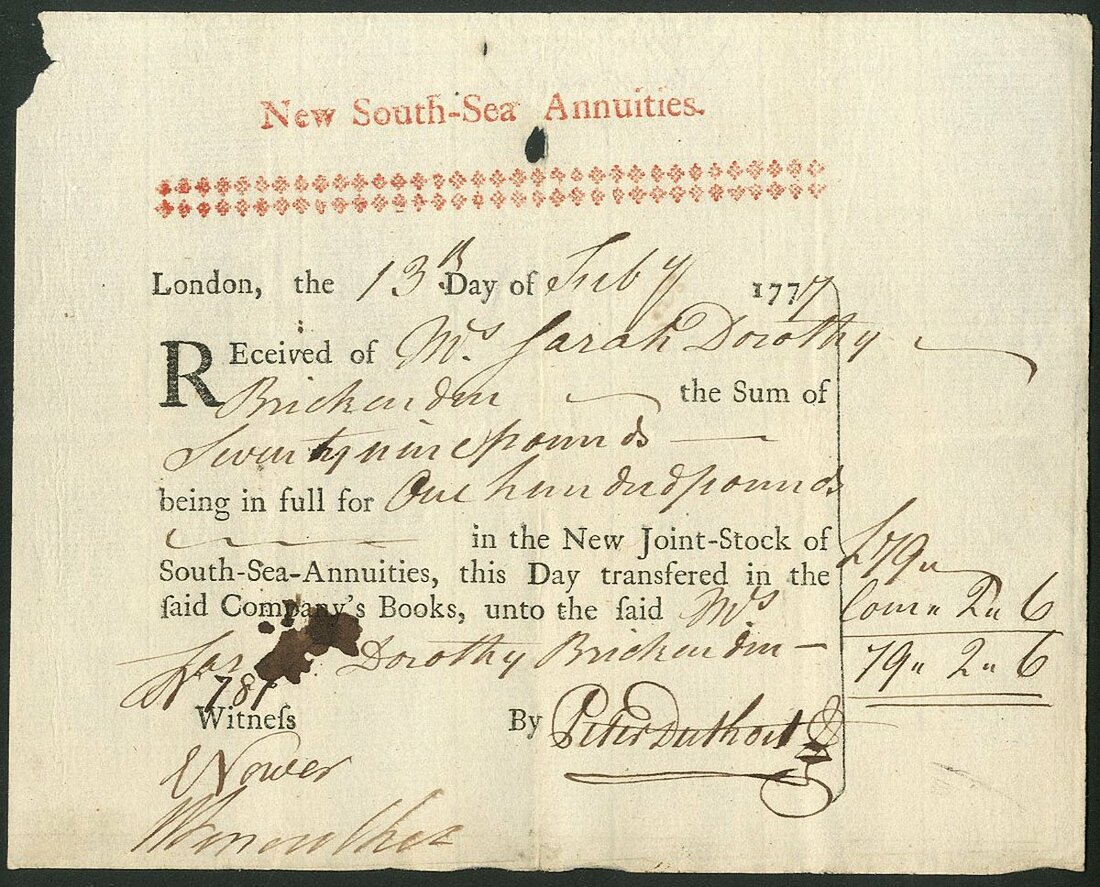 New South-Sea Annuities.
London, the 13th Day of July 1777
REceived of Mrs Sarah Dorothy
Brickenden the Sum of
Seventy nine pounds
being in full for One hundred pounds
in the New Joint-Stock of
South-Sea-Annuities, this Day transfered in the
ſaid Company's Books, unto the ſaid Mrs
Dorothy Brickenden
Witneſs By Peter Duthoit
£79
Com 2 6
79 2 6